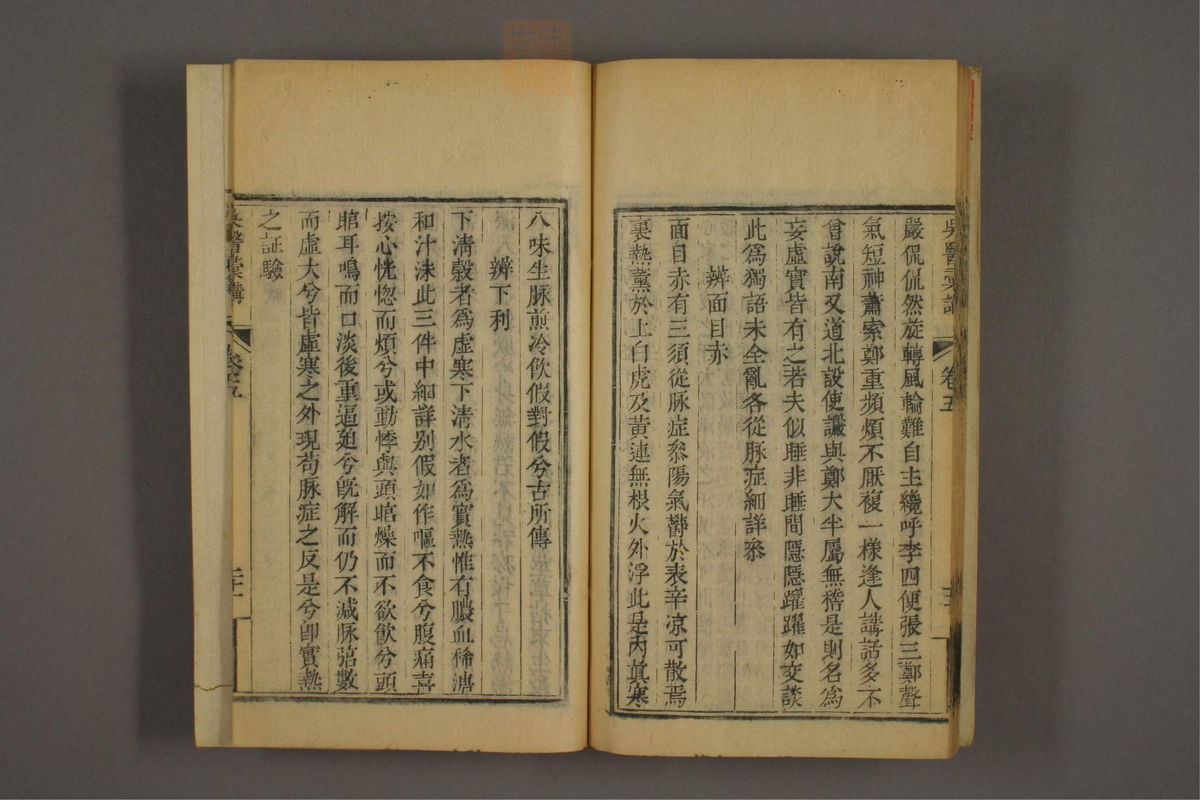 吳醫彙講
卷五
嚴侃侃然旋轉風輪難自主纔呼李四便張三鄭聲
氣短神蕭索鄭重頻煩不厭複一樣逢人講話多不
曾說南又道北設使讝與鄭大半屬無稽是則名爲
妄虛實皆有之若夫似睡非睡間隱隱躍躍如交談
此爲獨語未全亂各從脉症細詳叅
辨面目赤
面目赤有三須從脉症叅陽氣鬱於表辛凉可散焉
裏熱薰於上白虎及黃連無根火外浮此是內眞寒
八味生脉煎冷飲假對假兮古所傳
辨下利
下淸穀者爲虛寒下淸水者爲實熱惟有膿血稀溏
和汁沫此三件中細詳別假如作嘔不食兮腹痛喜
按心恍惚而煩兮或動悸與頭暗燥而不欲飲兮頭
暗耳鳴而口淡後重逼廹兮旣解而仍不減脉弦數
而虛大兮皆虛寒之外現苟脉症之反是兮卽實熱
之証驗
吳醫彙講
卷五